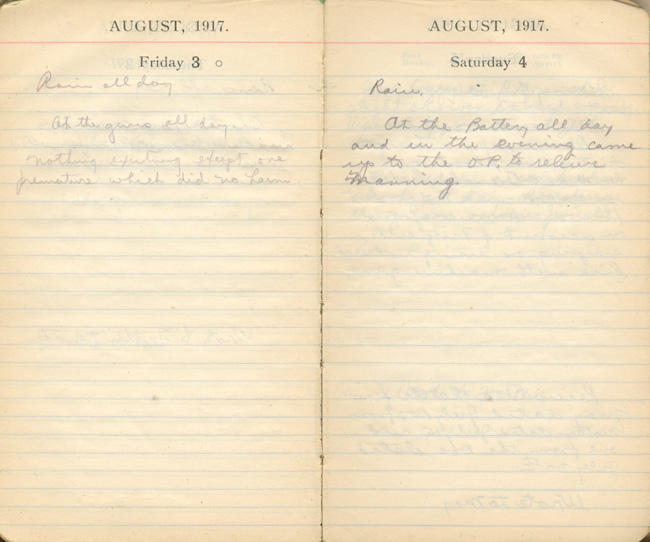 AUGUST, 1917.
Friday 3
Rain all day
At the guns all day
nothing exciting except one
premature which did no harm
AUGUST, 1917.
Saturday 4
Rain.
At the Battery all day
and in the evening came
up to the O.P. to relieve
Manning.